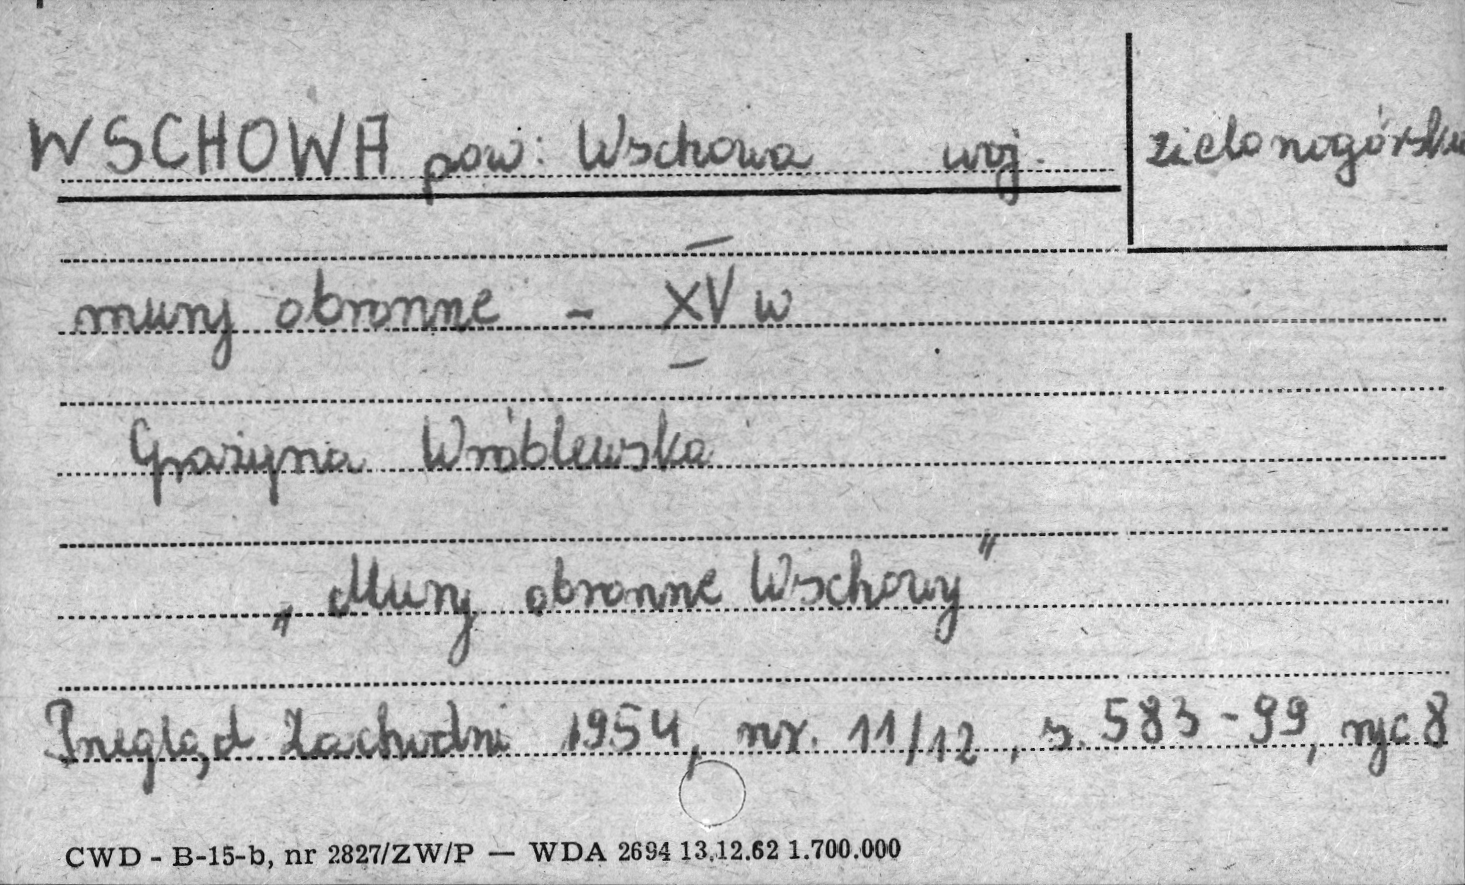 WSCHOWA pow: Wschowa woj. zielonogórskie
mury obronne - XV w
Grażyna Wróblewska
„Mury obronne Wschowy"
Przegląd Zachodni 1954, nr. 11/12, s. 583-99, ryc 8
CWD - B-15-b, nr 2827/ZW/P — WDA 2694 13.12.62 1.700.000